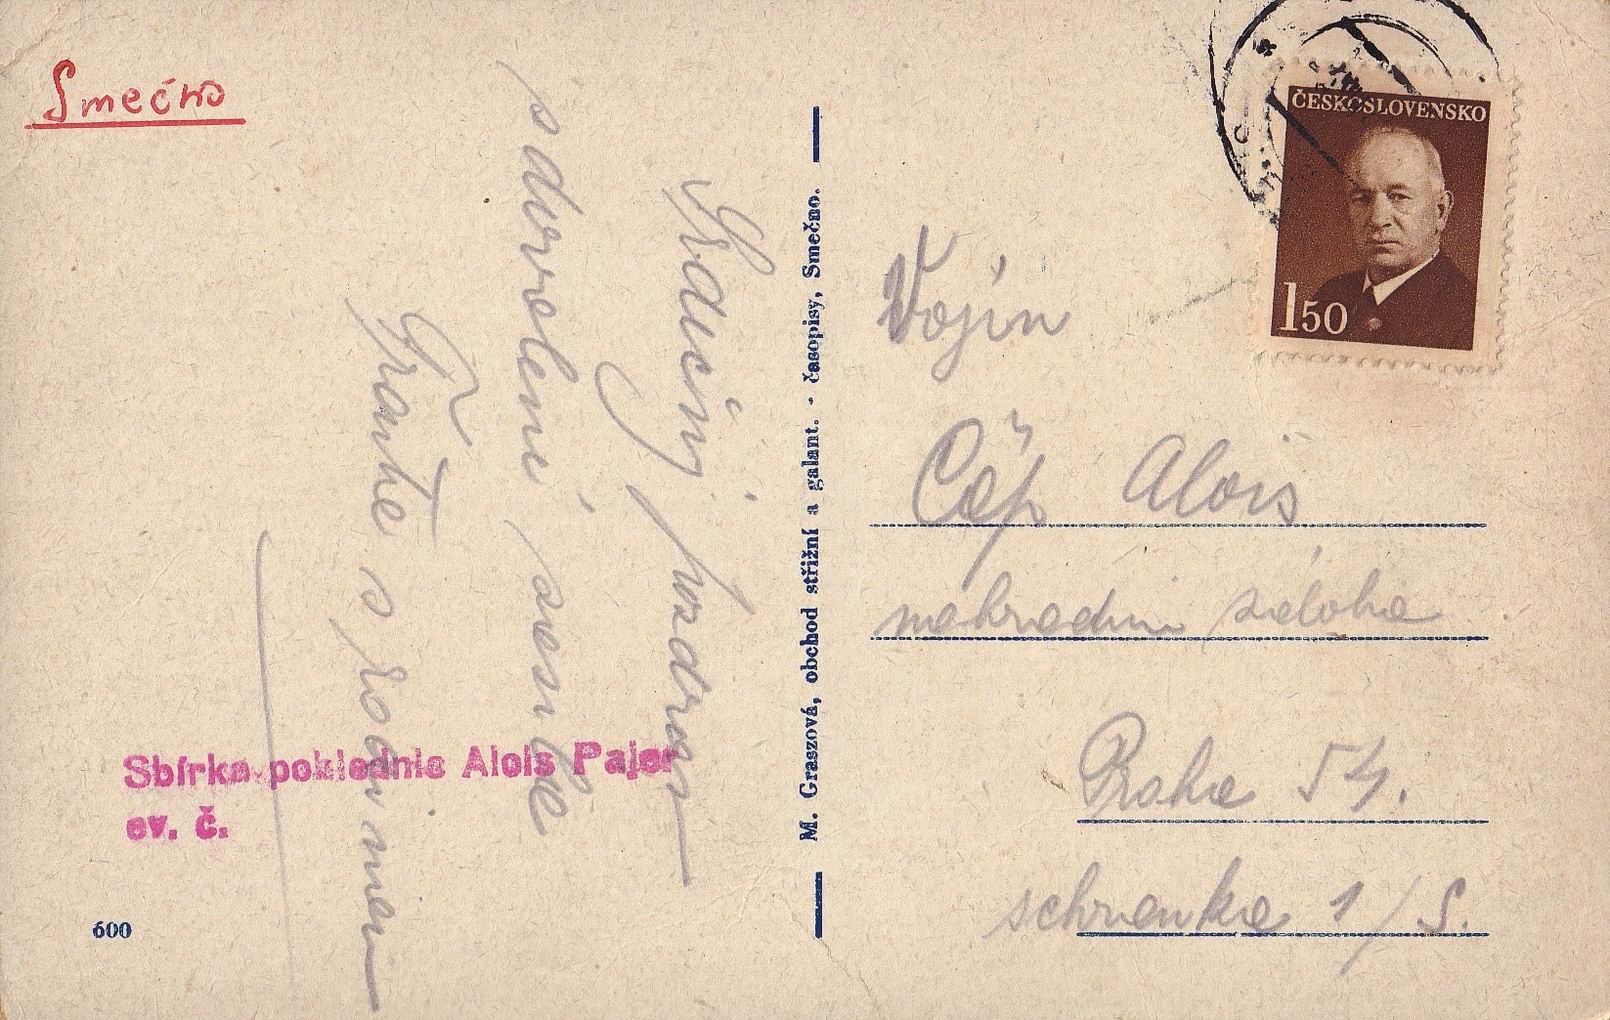 Smečno
Srdečný pozdrav
s dovolené zasílá
Franta s rodinou
Sbírka pohlednic Alois Pajer
ev. č.
600
M. Graszová, obchod střižní a galant. - časopisy, Smečno.
ČESKOSLOVENSKO
150
Vojín
Čáp Alois
náhradní záloha
Praha 54.
schránka 1/S.